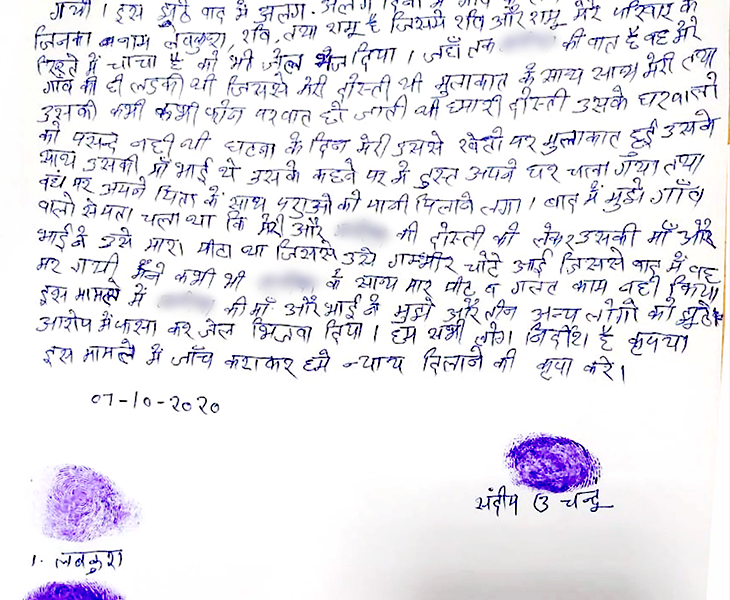 गयी। इस झूठे वाद में अलग-अलग दिनों में
जिनका बनाम लवकुश, रवि, तथा रामू है जिसमें रवि और रामू मेरे परिवार के
रिश्ते में चाचा है को भी जेल भेज दिया। जहाँ तक की बात है वह मेरे
गाँव की ही लड़की थी जिससे मेरी दोस्ती थी मुलाकात के साथ साथ मेरी तथा
उसकी कभी कभी फोन पर बात हो जाती थी हमारी दोस्ती उसके घर वालो
को पसन्द नहीं थी घटना के दिन मेरी उससे खेतो पर मुलाकात हुई उसके
साथ उसकी माँ भाई थे उसके कहने पर मे तुरन्त अपने घर चला गया तथा
वहां पर अपने पिता के साथ पशुओ को पानी पिलाने लगा। बाद में मुझे गाँव
वालो से पता चला था कि मेरी और की दोस्ती को लेकर उसकी माँ और
भाई ने उसे मारा पीटा था जिससे उसे गम्भीर चोटे आई जिससे बाद में वह
मर गयी, मैंने कभी भी के साथ मार पीट व गलत काम नहीं किया
इस मामले में की माँ और भाई ने मुझे और तीन अन्य लोगो को झूठे
आरोप में फसा कर जेल भिजवा दिया। हम सभी लोग निर्दोष है कृपया
इस मामले में जाँच कराकर हमे न्याय दिलाने की कृपा करे।
07-10-2020
संदीप उ चन्दू
1. लवकुश